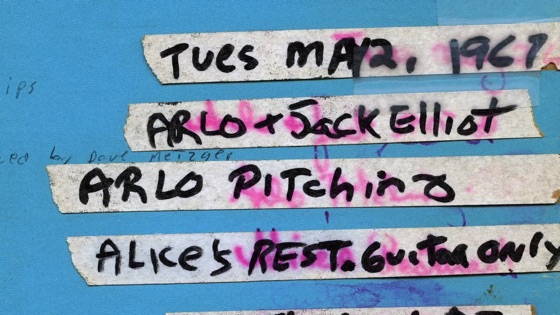 TUES MAY 2, 1967
ips
ARLO + JACK Elliot
ced by Dave Metzger
ARLO PITching
ALICE'S REST. Guitar ONly